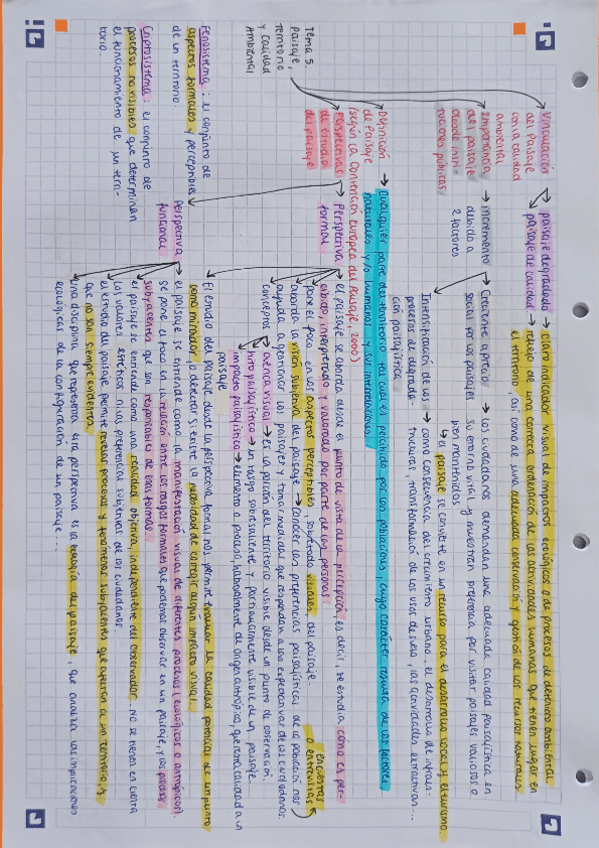 Tema 5.
Paisaje,
Territorio
y Calidad
Ambiental
Vinculación
del Paisaje
con la calidad
ambiental
→ paisaje degradado → claro indicador visual de impactos ecológicos o de procesos de deterioro ambiental.
paisaje de calidad → reflejo de una correcta ordenación de las actividades humanas que tienen lugar en
el territorio, así como de una adecuada conservación y gestión de los recursos naturales
Importancia
del paisaje
desde insti-
tuciones públicas
→ incremento
debido a
2 factores
→ Creciente aprecio
social por los paisajes
→ los ciudadanos demandan una adecuada calidad paisajística en
su entorno vital y muestran preferencia por visitar paisajes valiosos o
bien mantenidos
↳ el paisaje se convierte en un recurso para el desarrollo local y el turismo.
Intensificación de los
procesos de degrada-
ción paisajística
→ como consecuencia del crecimiento urbano, el desarrollo de infraes-
tructuras, transformación de los usos de suelo, las actividades extractivas...
Definición
de Paisaje
(según la Convención europea del Paisaje, 2000)
→ Cualquier parte del territorio tal cual es percibido por las poblaciones, cuyo carácter resulta de los factores
naturales y/o humanos y sus interrelaciones.
Perspectivas
de estudio
del paisaje
→ Perspectiva
formal
→ el paisaje se aborda desde el punto de vista de la percepción, es decir, se estudia cómo es per-
cibido, interpretado y valorado por parte de las personas
pone el foco en los aspectos perceptibles sobretodo visuales del paisaje.
aborda la visión subjetiva del paisaje → conocer las preferencias paisajísticas de la población nos
encuestas
o entrevistas
ayuda a gestionar los paisajes y tomar medidas que respondan a las expectativas de los ciudadanos.
conceptos → cuenca visual → es la porción del territorio visible desde un punto de observación.
hito paisajístico → un rasgo sobresaliente y particularmente visible de un paisaje.
impacto paisajístico → elemento o proceso, habitualmente de origen antrópico, que resta calidad a un
paisaje
El estudio del paisaje desde la perspectiva formal nos permite evaluar la calidad potencial de un punto
como mirador, o decidir si existe la posibilidad de corregir algún impacto visual.
Perspectiva
funcional
→ el paisaje se entiende como la manifestación visual de diferentes procesos (ecológicos o antrópicos).
se pone el foco en la relación entre los rasgos formales que podemos observar en un paisaje, y los procesos
subyacentes que son responsables de esas formas
el paisaje se entiende como una realidad objetiva, independiente del observador. No se tienen en cuenta
los valores estéticos ni las preferencias subjetivas de los ciudadanos.
el estudio del paisaje permite revelar procesos y fenómenos subyacentes que afectan a un territorio y
que no son siempre evidentes.
una disciplina que representa esta perspectiva es la ecología del paisaje, que analiza las implicaciones
ecológicas de la configuración de un paisaje.
Fenosistema: el conjunto de
aspectos formales y perceptibles
de un territorio.
Criptosistema: el conjunto de
procesos no visibles que determinan
el funcionamiento de un terri-
torio.